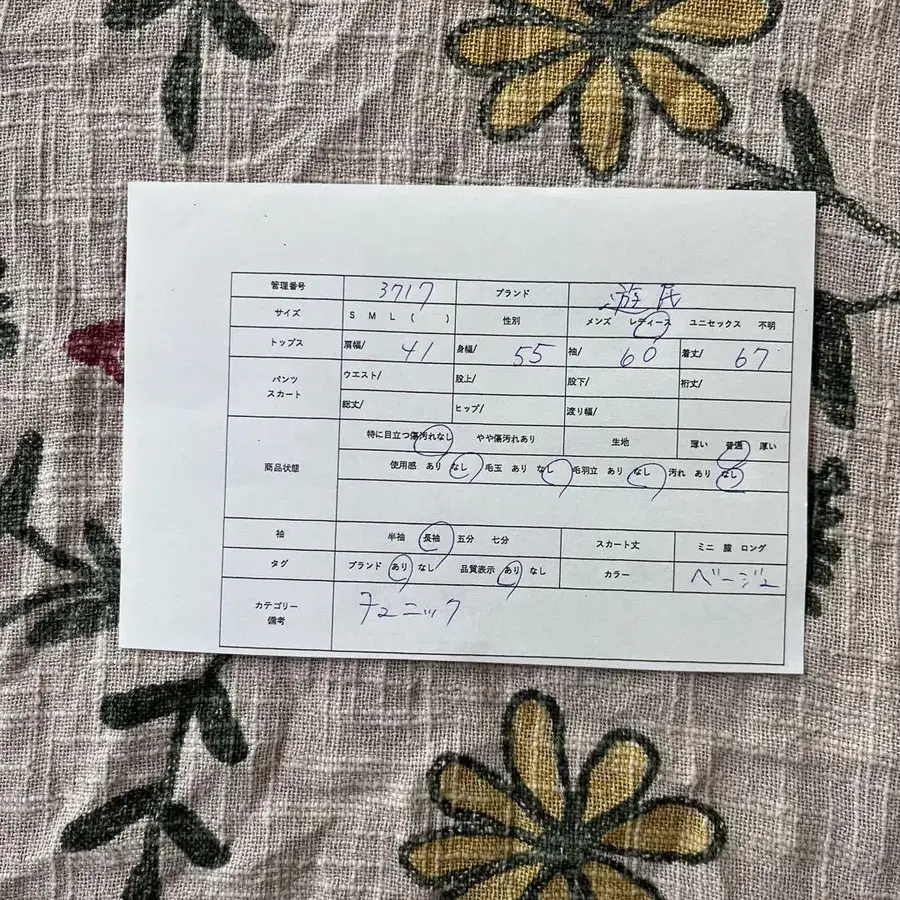 管理番号 3717 ブランド 游民
サイズ S M L ( ) 性別 メンズ レディース ユニセックス 不明
トップス 肩幅/ 41 身幅/ 55 袖/ 60 着丈/ 67
パンツ スカート ウエスト/ 股上/ 股下/ 裄丈/
総丈/ ヒップ/ 渡り幅/
商品状態 特に目立つ傷汚れなし やや傷汚れあり 生地 薄い 普通 厚い
使用感 あり なし 毛玉 あり なし 毛羽立 あり なし 汚れ あり なし
袖 半袖 長袖 五分 七分 スカート丈 ミニ 膝 ロング
タグ ブランド あり なし 品質表示 あり なし カラー ベージュ
カテゴリー 備考 チュニック